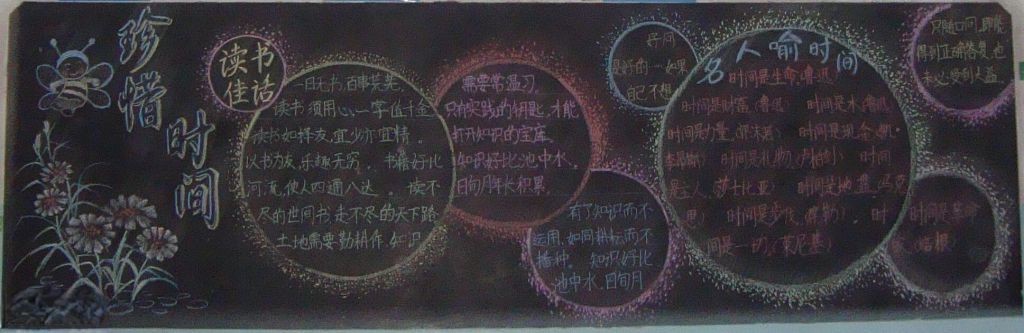 珍惜时间
读书
佳话
一日无书，百事荒芜。
读书须用心，一字值千金
读书如择友，宜少亦宜精。
以书为友，乐趣无穷。书籍好比
河流，使人四通八达。读不
尽的世间书，走不尽的天下路
土地需要勤耕作，知识
需要常温习。
只有实践的钥匙，才能
打开知识的宝库。
知识好比池中水。
日旬月年长积累。
有了知识而不
运用，如同耕耘而不
播种。知识好比
池中水，日旬月
好问
是好的…如果
自己不想
只随口问，即能
得到正确答复，也
未必受到大益
名人喻时间
时间是生命（鲁迅）
时间是财富 时间是水
时间是力量 时间是现金
时间是礼物 时间
是 人（莎士比亚） 时间是地盘 马克
思） 时间是 时
间是一切（
时间是革命